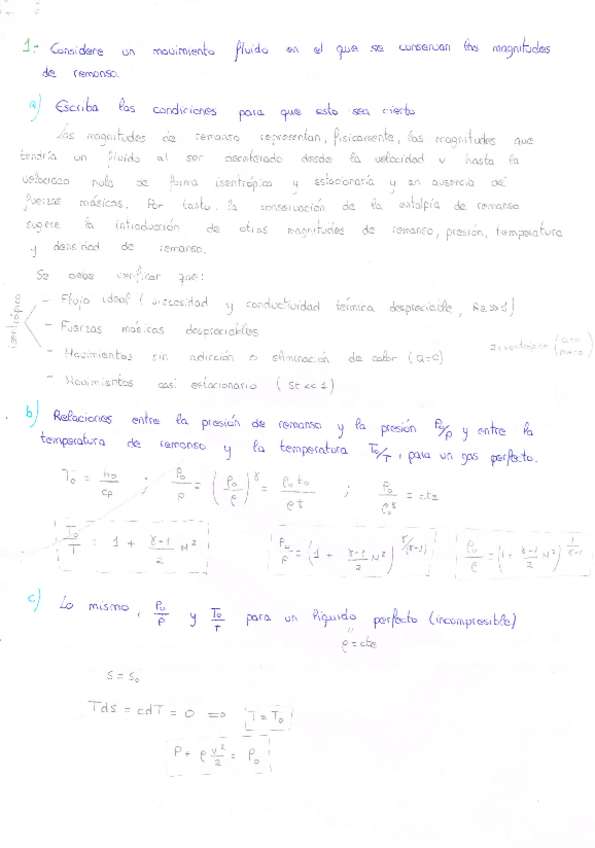 1.- Considere un movimiento fluido en el que se conservan las magnitudes
de remanso.
a) Escriba las condiciones para que esto sea cierto
Las magnitudes de remanso representan, físicamente, las magnitudes que
tendría un fluido al ser decelerado desde la velocidad v hasta la
velocidad nula de forma isentrópica y estacionaria y en ausencia de
fuerzas másicas. Por tanto, la conservación de la entalpía de remanso
sugiere la introducción de otras magnitudes de remanso, presión, temperatura
y densidad de remanso.
Se debe verificar que:
isentrópico
- Flujo ideal (viscosidad y conductividad térmica despreciable, Re>>1)
- Fuerzas másicas despreciables
- Movimientos sin adición o eliminación de calor (Q=0)
- Movimientos casi estacionario (St << 1)
b) Relaciones entre la presión de remanso y la presión P₀/P y entre la
temperatura de remanso y la temperatura T₀/T, para un gas perfecto.
T₀ = h₀/cp ; P₀/P = (ρ₀/ρ)^γ = ; P₀/ρ₀^γ = cte
T₀/T = 1 + γ-1/2 M² = (1 + γ-1/2 M²)^γ/(γ-1) ρ₀/ρ = (1 + γ-1/2 M²)^1/γ-1
c) Lo mismo, P₀/P y T₀/T para un líquido perfecto (incompresible)
ρ=cte
s = s₀
Tds = cdT = 0 ⇒ T = T₀
P + ρ v²/2 = P₀